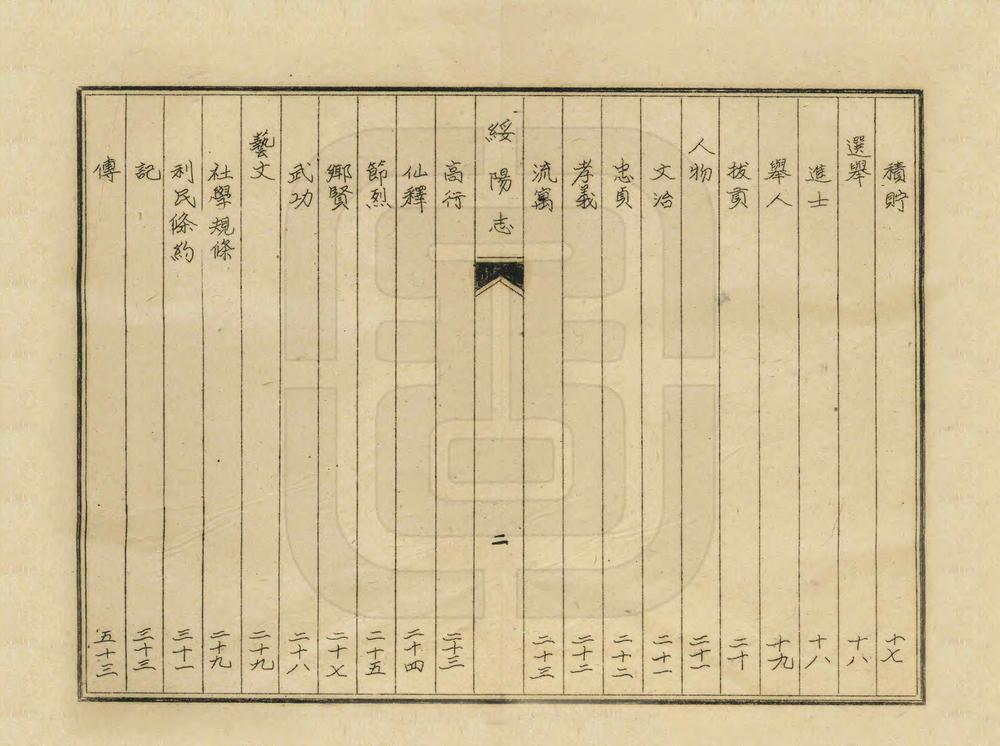 積貯 十七
選舉 十八
進士 十八
舉人 十九
拔貢 二十
人物 二十一
文治 二十一
忠貞 二十二
孝義 二十二
流寓 二十三
綏陽志 二
高行 二十三
仙釋 二十四
節烈 二十五
鄉賢 二十七
武功 二十八
藝文 二十九
社學規條 二十九
利民條約 三十一
記 三十三
傳 五十三